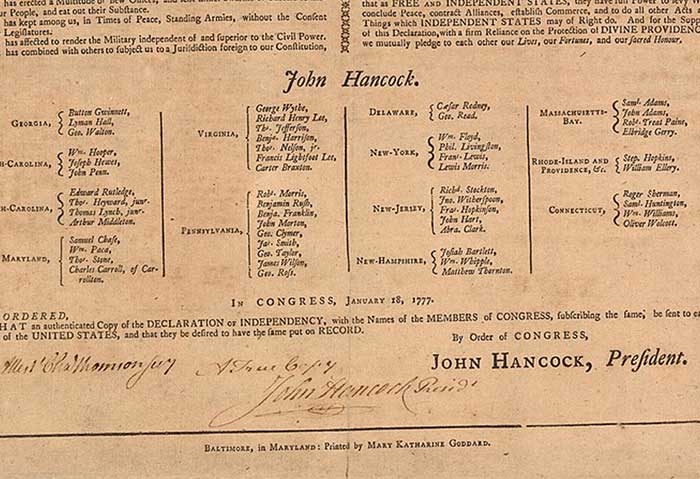 or People, and eat out their Substance.
has kept among us, in Times of Peace, Standing Armies, without the Consent
Legislatures.
has affected to render the Military independent of and superior to the Civil Power.
has combined with others to subject us to a Jurisdiction foreign to our Constitution,
that as FREE AND INDEPENDENT STATES, they have full Power to levy W
conclude Peace, contract Alliances, establish Commerce, and to do all other Acts a
Things which INDEPENDENT STATES may of Right do. And for the Supp
of this Declaration, with a firm Reliance on the Protection of DIVINE PROVIDENC
we mutually pledge to each other our Lives, our Fortunes, and our sacred Honour.
John Hancock.
GEORGIA,
Button Gwinnett,
Lyman Hall,
Geo. Walton.
H-CAROLINA,
Wm. Hooper,
Joseph Hewes,
John Penn.
H-CAROLINA,
Edward Rutledge,
Thos. Heyward, junr.
Thomas Lynch, junr.
Arthur Middleton.
MARYLAND,
Samuel Chase,
Wm. Paca,
Thos. Stone,
Charles Carroll, of Car-
rollton.
VIRGINIA,
George Wythe,
Richard Henry Lee,
Thos. Jefferson,
Benja. Harrison,
Thos. Nelson, jr.
Francis Lightfoot Lee,
Carter Braxton.
PENNSYLVANIA,
Robt. Morris,
Benjamin Rush,
Benja. Franklin,
John Morton,
Geo. Clymer,
Jas. Smith,
Geo. Taylor,
James Wilson,
Geo. Ross.
DELAWARE,
Cæsar Rodney,
Geo. Read.
NEW-YORK,
Wm. Floyd,
Phil. Livingston,
Frans. Lewis,
Lewis Morris.
NEW-JERSEY,
Richd. Stockton,
Jno. Witherspoon,
Fras. Hopkinson,
John Hart,
Abra. Clark.
NEW-HAMPSHIRE,
Josiah Bartlett,
Wm. Whipple,
Matthew Thornton.
MASSACHUSETTS-
BAY.
Saml. Adams,
John Adams,
Robt. Treat Paine,
Elbridge Gerry.
RHODE-ISLAND AND
PROVIDENCE, &c.
Step. Hopkins,
William Ellery.
CONNECTICUT,
Roger Sherman,
Saml. Huntington,
Wm. Williams,
Oliver Wolcott.
IN CONGRESS, JANUARY 18, 1777.
ORDERED,
HAT an authenticated Copy of the DECLARATION OF INDEPENDENCY, with the Names of the MEMBERS OF CONGRESS, subscribing the same, be sent to ea
of the UNITED STATES, and that they be desired to have the same put on RECORD.
By Order of CONGRESS,
JOHN HANCOCK, President.
Attest Chas Thomson secy
A True Copy
John Hancock Presidt
BALTIMORE, in MARYLAND: Printed by MARY KATHARINE GODDARD.